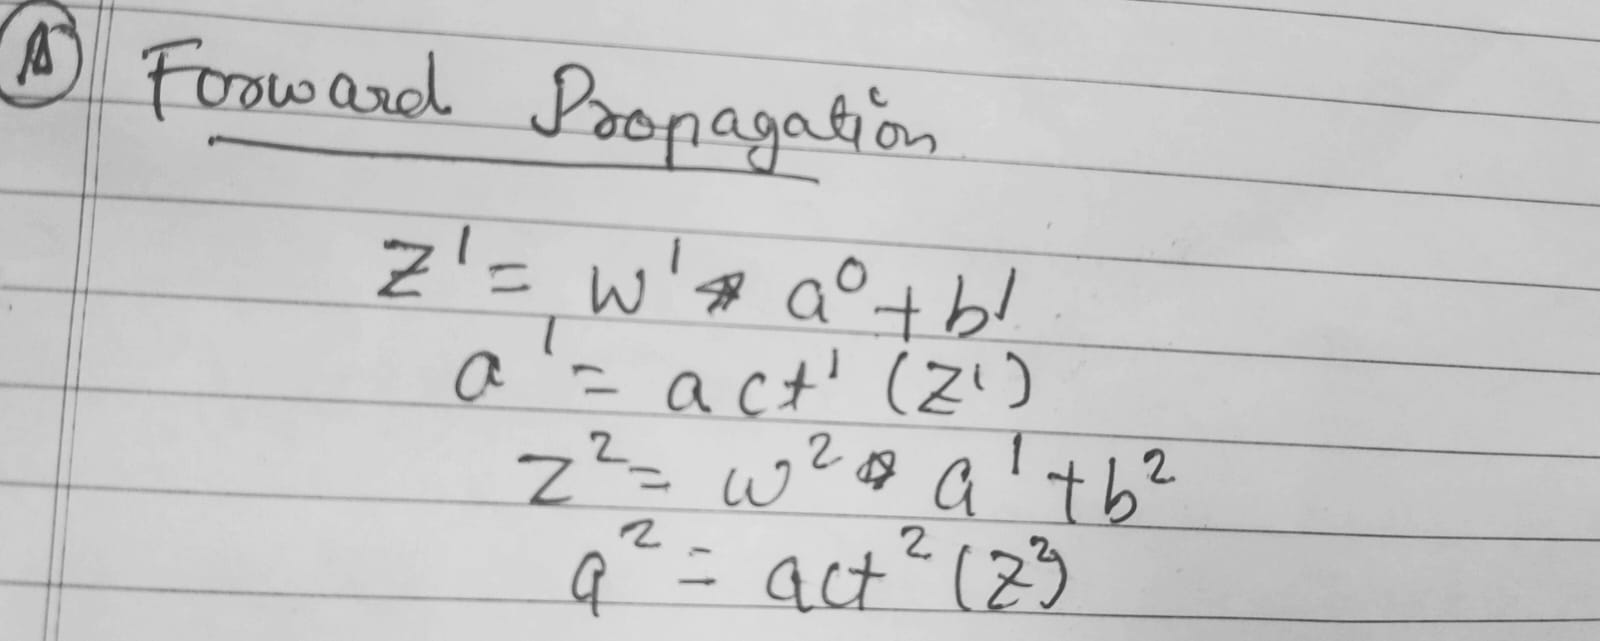 A Forward Propagation
z¹ = w¹ * a⁰ + b¹
a¹ = act¹ (z¹)
z² = w² * a¹ + b²
a² = act² (z²)